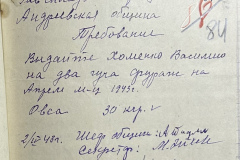 Андреевская община
Требование
Выдайте Хоменко Василию
на два гуча фуража на
Апрель м-ц 1943г.
Овса 30 кгр.
2/IV 43г.
Секретар:
84